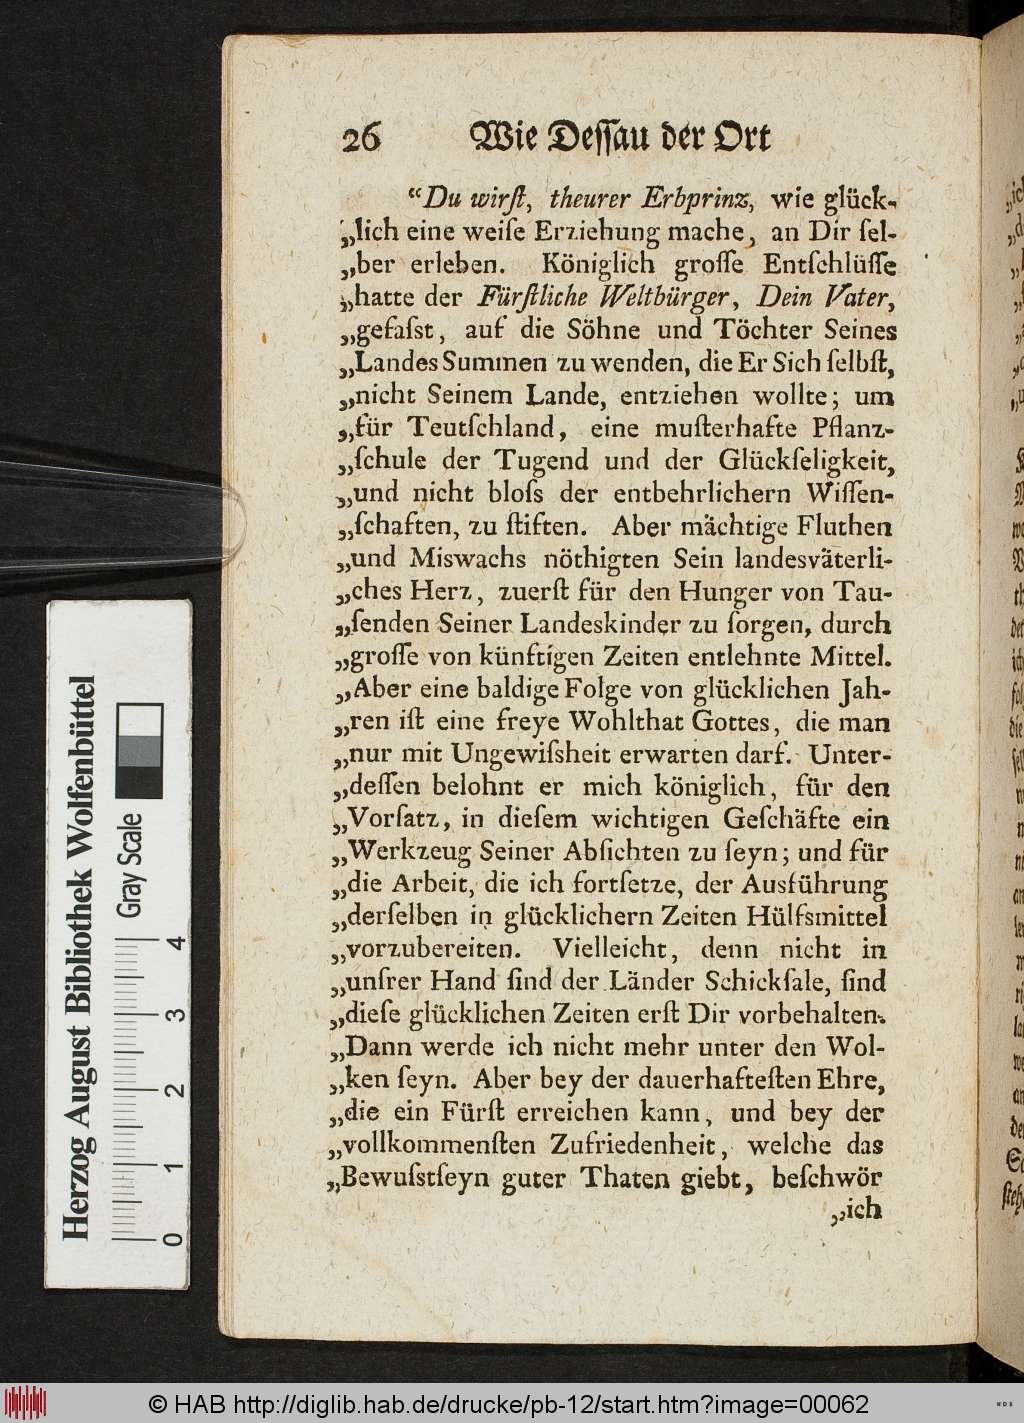 26 Wie Deſſau der Ort
“Du wirſt, theurer Erbprinz, wie glück-
„lich eine weiſe Erziehung mache, an Dir ſel-
„ber erleben. Königlich groſſe Entſchlüſſe
„hatte der Fürſtliche Weltbürger, Dein Vater,
„gefaſst, auf die Söhne und Töchter Seines
„Landes Summen zu wenden, die Er Sich ſelbſt,
„nicht Seinem Lande, entziehen wollte; um
„für Teutſchland, eine muſterhafte Pflanz-
„ſchule der Tugend und der Glückſeligkeit,
„und nicht bloſs der entbehrlichern Wiſſen-
„ſchaften, zu ſtiften. Aber mächtige Fluthen
„und Miswachs nöthigten Sein landesväterli-
„ches Herz, zuerſt für den Hunger von Tau-
„ſenden Seiner Landeskinder zu ſorgen, durch
„groſſe von künftigen Zeiten entlehnte Mittel.
„Aber eine baldige Folge von glücklichen Jah-
„ren iſt eine freye Wohlthat Gottes, die man
„nur mit Ungewiſsheit erwarten darf. Unter-
„deſſen belohnt er mich königlich, für den
„Vorſatz, in dieſem wichtigen Geſchäfte ein
„Werkzeug Seiner Abſichten zu ſeyn; und für
„die Arbeit, die ich fortſetze, der Ausführung
„derſelben in glücklichern Zeiten Hülfsmittel
„vorzubereiten. Vielleicht, denn nicht in
„unſrer Hand ſind der Länder Schickſale, ſind
„dieſe glücklichen Zeiten erſt Dir vorbehalten.
„Dann werde ich nicht mehr unter den Wol-
„ken ſeyn. Aber bey der dauerhafteſten Ehre,
„die ein Fürſt erreichen kann, und bey der
„vollkommenſten Zufriedenheit, welche das
„Bewuſstſeyn guter Thaten giebt, beſchwör
„ich
Herzog August Bibliothek Wolfenbüttel
Gray Scale
0 1 2 3 4
© HAB http://diglib.hab.de/drucke/pb-12/start.htm?image=00062